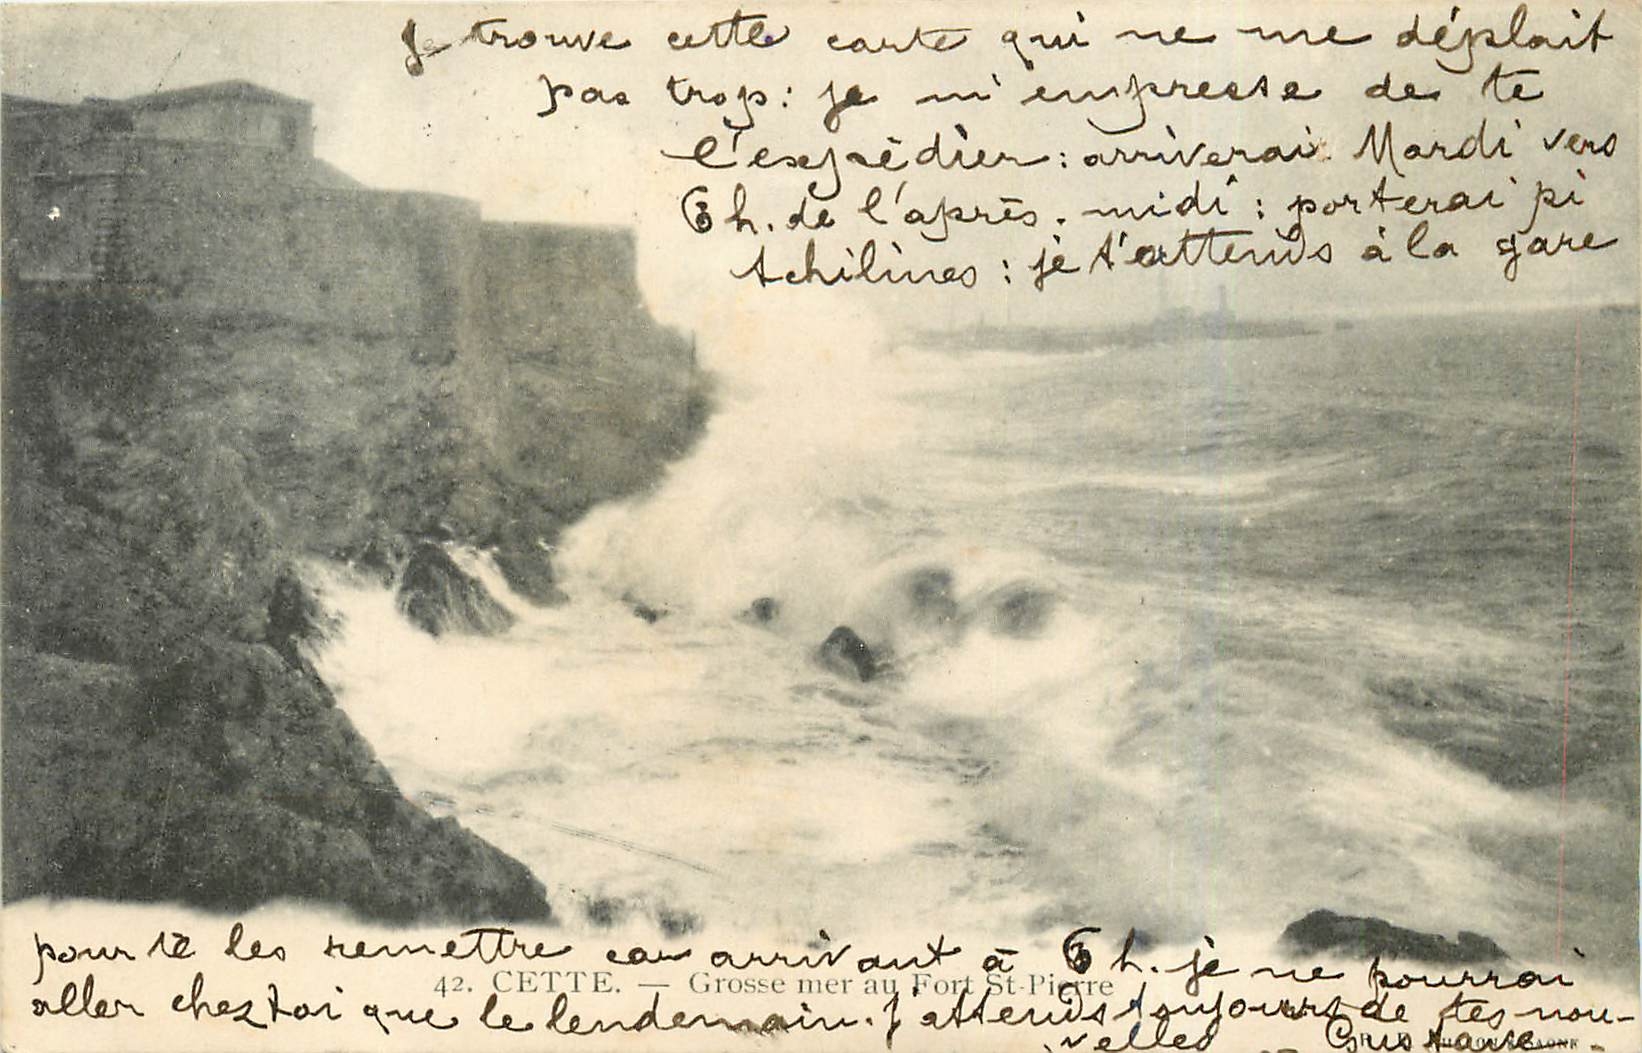 Je trouve cette carte qui ne me déplait
pas trop: je m'empresse de te
l'expédier: arriverai Mardi vers
6 h. de l'après-midi: porterai pi
tchilines: je t'attends à la gare
pour te les remettre car arrivant à 6 h. je ne pourrai
42. CETTE. — Grosse mer au Fort St-Pierre
aller chez toi que le lendemain. J'attends toujours de tes nou-
velles Gustave